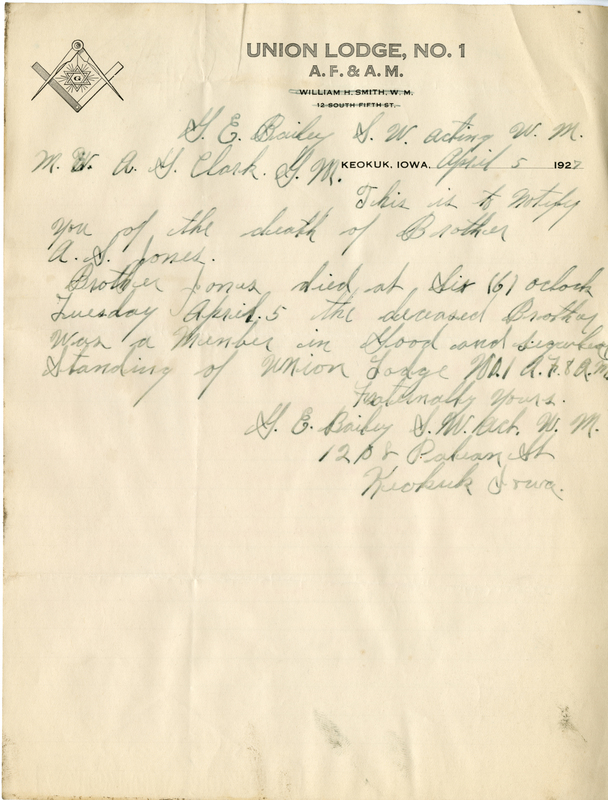 G
UNION LODGE, NO. 1
A. F. & A. M.
WILLIAM H. SMITH, W. M.
12 SOUTH FIFTH ST.
G. E. Bailey S. W. acting W. M.
M. W. A. G. Clark. G. M. KEOKUK, IOWA, April 5 1927
This is to Notify
you of the death of Brother
A. S. Jones.
Brother Jones died at Six (6) oclock
Tuesday April. 5 the deceased Brother
Was a Member in Good and
Standing of Union Lodge No. 1 A. F. & A. M.
Fraternally Yours.
G. E. Bailey S. W. Act. W. M.
St
Keokuk Iowa.